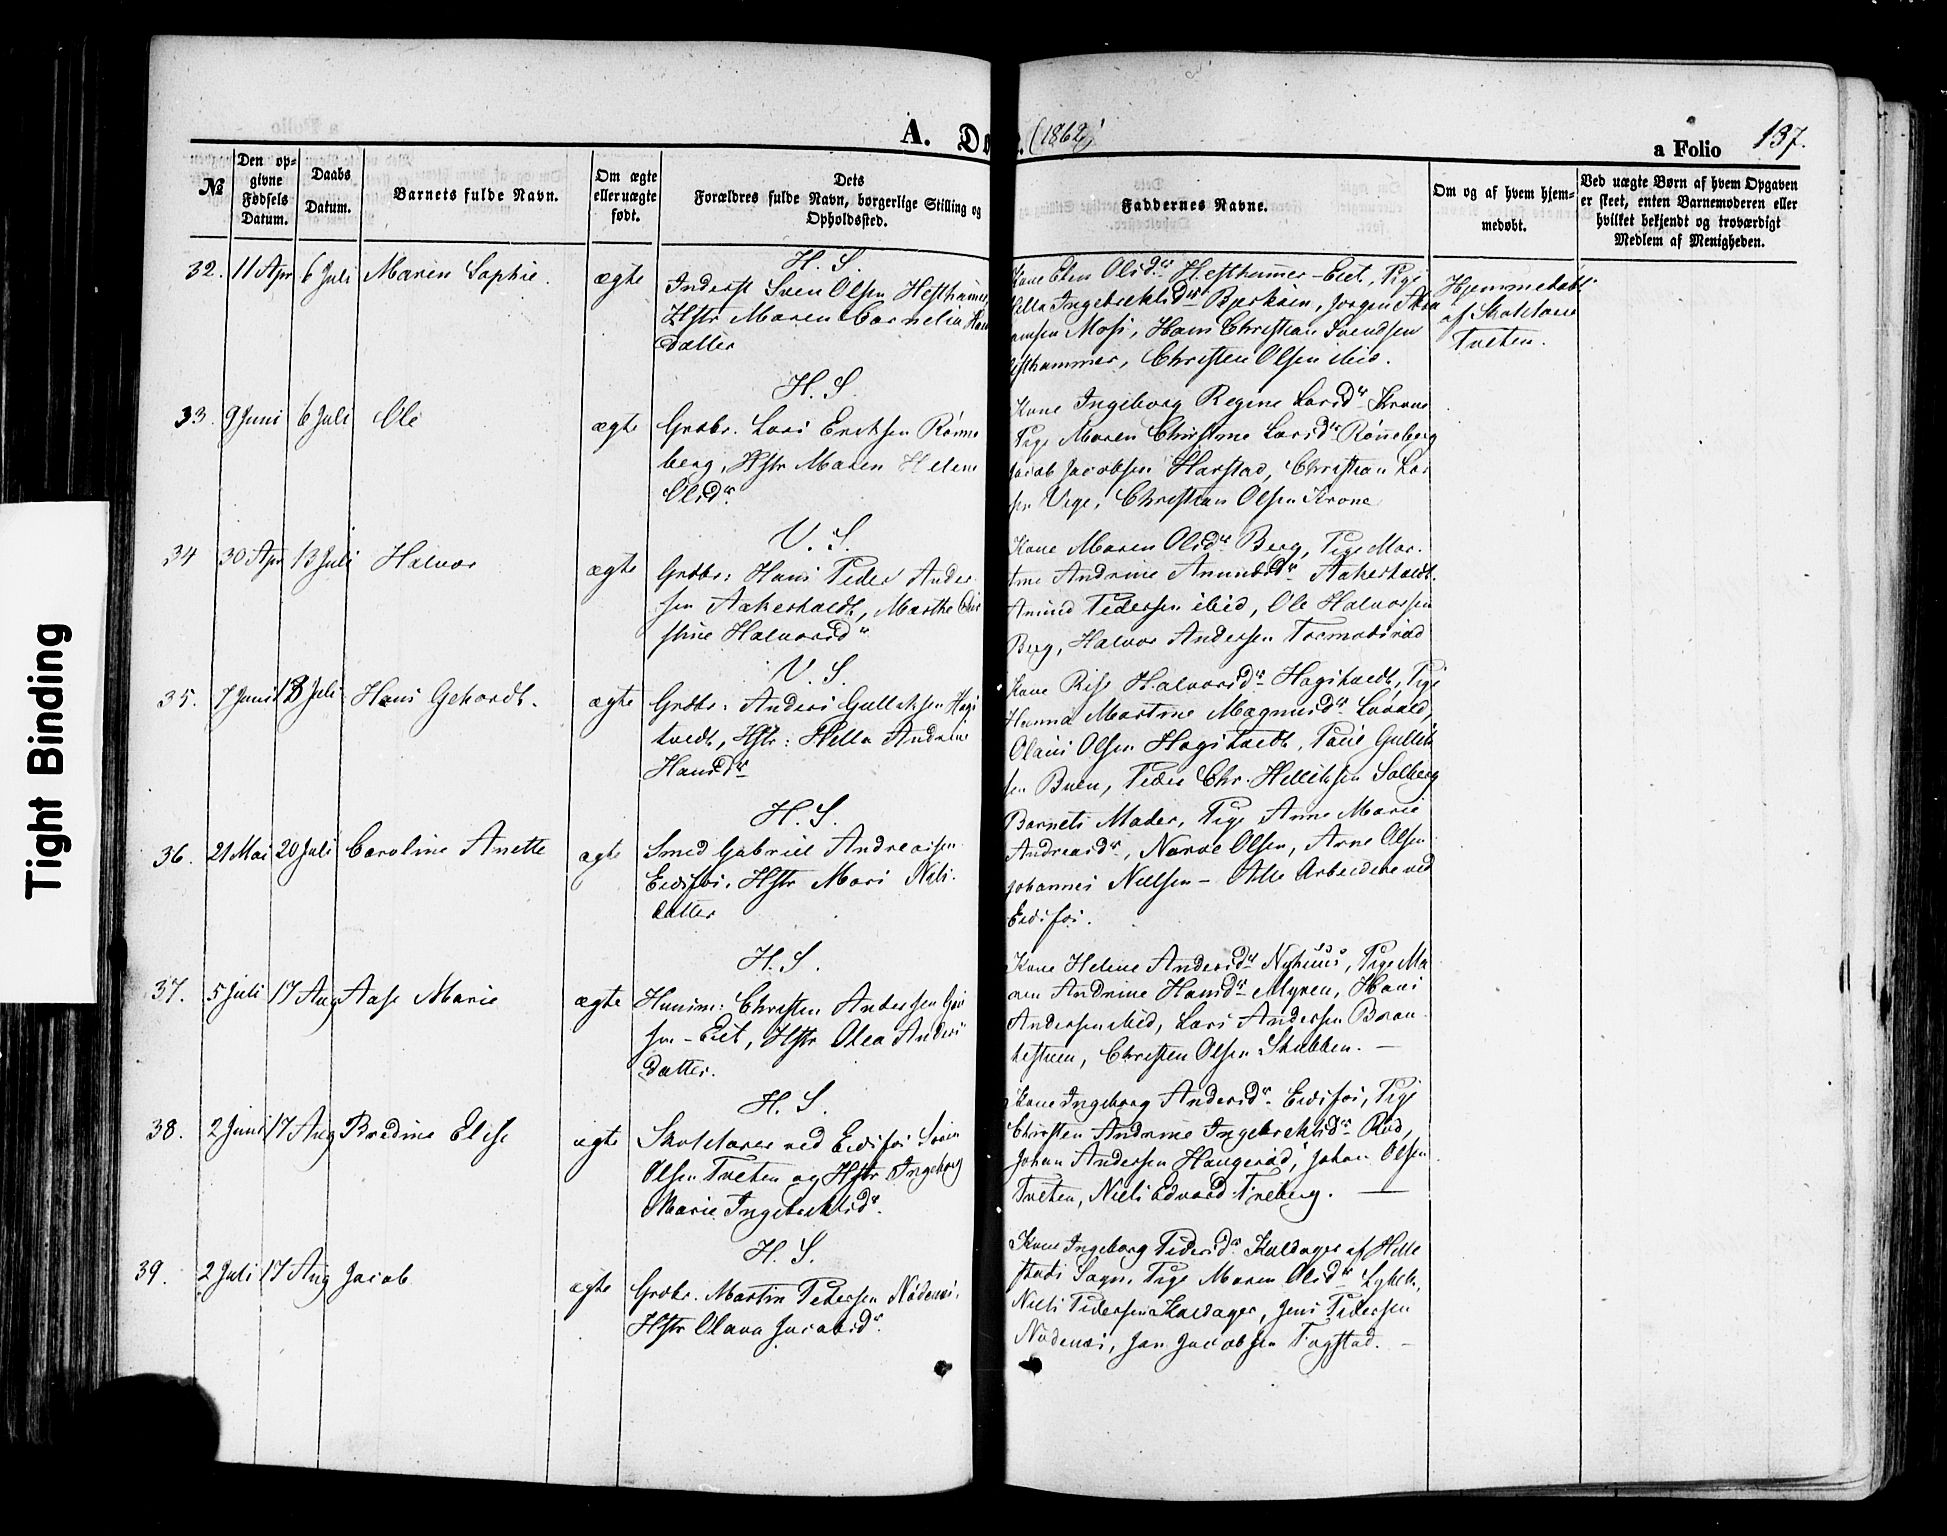 Tight Binding
A. Dø (1862)
a Folio 137.
№
Den op-
givne
Fødsels
Datum.
Daabs
Datum.
Barnets fulde Navn.
Om ægte
eller uægte
født.
Dets
Forældres fulde Navn, borgerlige Stilling og
Opholdssted.
Faddernes Navne.
Om og af hvem hjem-
medøbt.
Ved uægte Børn af hvem Opgaven
er skeet, enten Barnemoderen eller
hvilket bekjendt og troværdigt
Medlem af Menigheden.
H. S.
32. 11 Apr 6 Juli Maren Sophie. ægte
Inderst Sven Olsen Hesthammer
Hstr Maren Cornelia Hans
datter
Kone Elen Olsdr Hesthammer-Eiet, Pige
Ingebrektsdr Bjerkøen, Jørgen
Moss, Hans Christian Svendsen
esthammer, Christen Olsen ibid.
Hjemmedøbt
af Skolelærer
Tveten.
H. S.
33. 9 Juni 6 Juli Ole ægte
Grdbr. Lars Eriksen Rønne
berg, Hstr Maren Helene
Olsdr.
Kone Ingeborg Regine Larsdr Krone
Pige Maren Christine Larsdr Rønneberg
Jacob Jacobsen Harstad, Christian Lar
sen Vege, Christian Olsen Krone
V. S.
34 30 Apr 13 Juli Halvor ægte
Grdbr: Hans Peder Ander
sen Aakerholdt, Marthe Chri
stine Halvorsdr
Kone Maren Olsdr Berg, Pige Mar-
Andrine Amundsdr Aakerholdt.
Amund Pedersen ibid, Ole Halvorsen
Berg, Halvor Andersen Tormodsrød
V. S.
35. 7 Juni 13 Juli Hans Gehardt. ægte
Grdbr: Anders Gulliksen Hags
tvedt, Hstr: Hella Andrine
Hansdr
Kone Rise Halvorsdr Hagstvedt, Pige
Hanna Martine Magnusdr
Olaus Olsen Hagstvedt, Gullik
sen Buen, Peder Chr. Helliksen Solberg
H. S.
36. 21 Mai 20 Juli Caroline Anette ægte
Smed Gabriel Andreasen
Eidsfos, Hstr Mari Nils-
datter
Barnets Moder, Pige Anne Marie
Andreasdr, Narve Olsen, Arne Olsen
Johannes Nielsen - Alle Arbeidere ved
Eidsfos.
H. S.
37. 5 Juli 17 Aug Aase Marie ægte
Huusm: Christen Andersen
-Eiet, Hstr Olea Anders
datter.
Kone Helene Andersdr Nyhuus, Pige Ma
ren Andrine Hansdr Myren, Hans
Andersen ibid, Lars Andersen
Christen Olsen Stubben. —
H. S.
38. 2 Juni 17 Aug Bredine Elise ægte
Skolelærer ved Eidsfos Sven
Olsen Tveten og Hstr Ingeborg
Marie Ingebrektsdr.
Kone Ingeborg Andersdr. Eidsfos, Pige
Christen Andrine Ingebrektsdr Rød,
Johan Andersen Haugerød, Johan Olsen
Tveten, Niels Edvard —
H. S.
39. 2 Juli 17 Aug Jacob ægte
Grdbr. Martin Pedersen Nødenæs,
Hstr Olava Jacobsdr.
Kone Ingeborg Pedersdr Kaldager af Hille
stads Sogn, Pige Maren Olsdr
Niels Pedersen Kaldager, Jens Pedersen
Nødenæs, Jan Jacobsen Fogstad. —